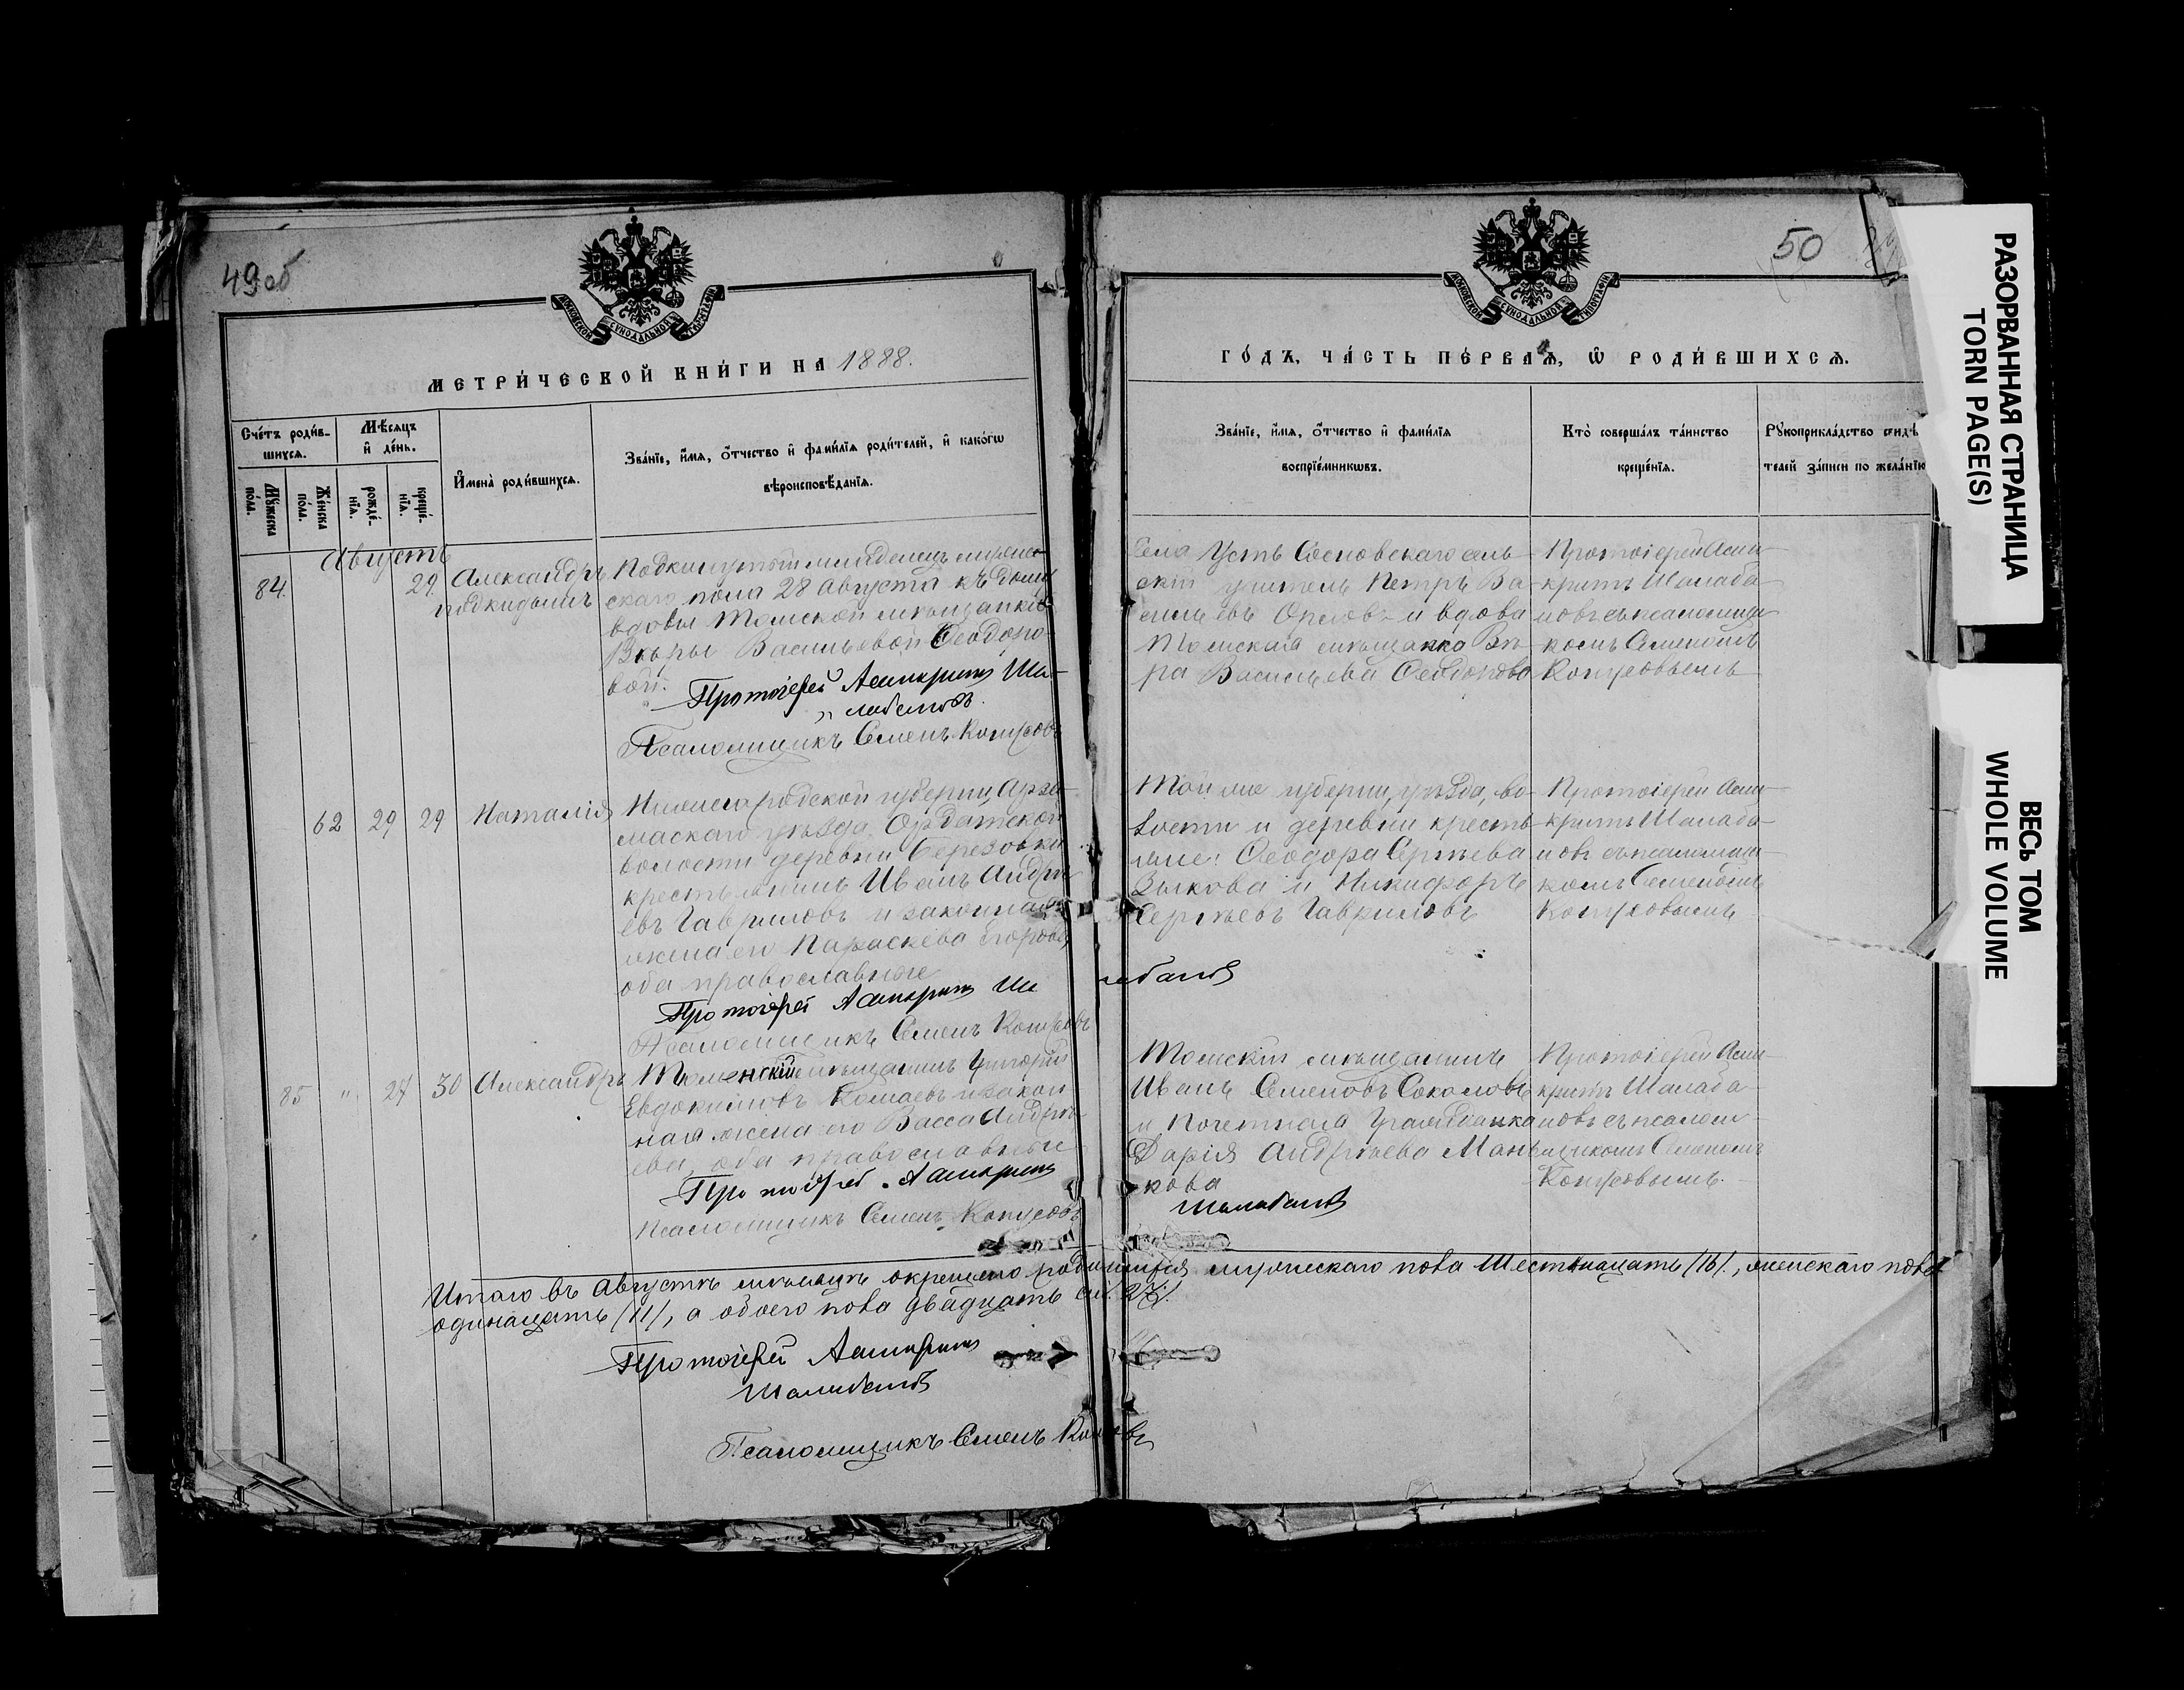 49об
МОСКОВСКОЙ СУНОДАЛЬНОЙ ТИПОГРАФІИ
МЕТРИ́ЧЕСКОЙ КНИ́ГИ НА 1888.
Сче́тъ роди́в-
шихсѧ.
Мѣ́сѧцъ
и҆ де́нь.
Мꙋ́жеска
по́ла.
Же́нска
по́ла.
рожде́-
нїѧ.
креще́-
нїѧ.
И҆мена̀ роди́вшихсѧ.
Зва́нїе, и҆́мѧ, о҆́тчество и҆ фами́лїѧ роди́телей, и҆ како́гѡ
вѣроисповѣ́данїѧ.
Августъ
84.
29.
Александръ
подкидышъ
Подкинутый младенецъ муже-
скаго пола 28 Августа къ дому
вдовы Томской мѣщанки
Вѣры Васильевой Ѳеодоро-
вой.
Протоіерей Асинкритъ Ша-
лабановъ.
Псаломщикъ Семенъ
62 29 29
Наталія
Нижегородской губерніи, Арза-
маскаго уѣзда, Ордатской
волости деревни Березовки
крестьянинъ Иванъ Андре
евъ Гавриловъ и законная
жена его Параскева Егорова,
оба православные
Протоіерей Асинкритъ Ша
Псаломщикъ Семенъ
85 " 27 30
Александръ
мѣщанинъ Григорій
Евдокимовъ и закон
ная жена его Васса Андре
ева, оба православные
Протоіерей Асинкритъ
Псаломщикъ Семенъ
Итого въ Августѣ мѣсяцѣ окрещено родившихся мужескаго пола Шестнацать /16/, женскаго пола
одинацать /11/, а обоего пола двадцать
Протоіерей Асинкритъ
Шалабановъ
Псаломщикъ Семенъ
50
МОСКОВСКОЙ СУНОДАЛЬНОЙ ТИПОГРАФІИ
ГО́ДЪ, ЧА́СТЬ ПЕ́РВАѦ, Ѡ҆ РОДИ́ВШИХСѦ.
Зва́нїе, и҆́мѧ, о҆́тчество и҆ фами́лїѧ
воспрїе́мникѡвъ.
Кто̀ соверша́лъ та́инство
креще́нїѧ.
Рꙋкоприкла́дство свидѣ́
телей за́писи по жела́нїю
Села Усть Сосновскаго сель-
скій учитель Петръ Ва-
сильевъ Орловъ и вдова
Томская мѣщанка Вѣ-
ра Васильева Ѳеодорова
Протоіерей Асин-
критъ Шалаба-
новъ съ псаломщи
комъ Семеномъ
Той же губерніи, уѣзда, во-
лости и деревни кресть-
яне: Ѳеодора Сергѣева
Зыкова и Никифоръ
Сергѣевъ Гавриловъ
Протоіерей Асин-
критъ Шалаба-
новъ съ псаломщи-
комъ Семеномъ
лабановъ
Томскій мѣщанинъ
Иванъ Семеновъ Соколовъ
и Почетная Гражданка
Дарія Андреева Мань
кова
Протоіерей Асин-
критъ Шалаба-
новъ съ псалом
щикомъ Семеномъ
Шалабановъ
РАЗОРВАННАЯ СТРАНИЦА
TORN PAGE(S)
ВЕСЬ ТОМ
WHOLE VOLUME